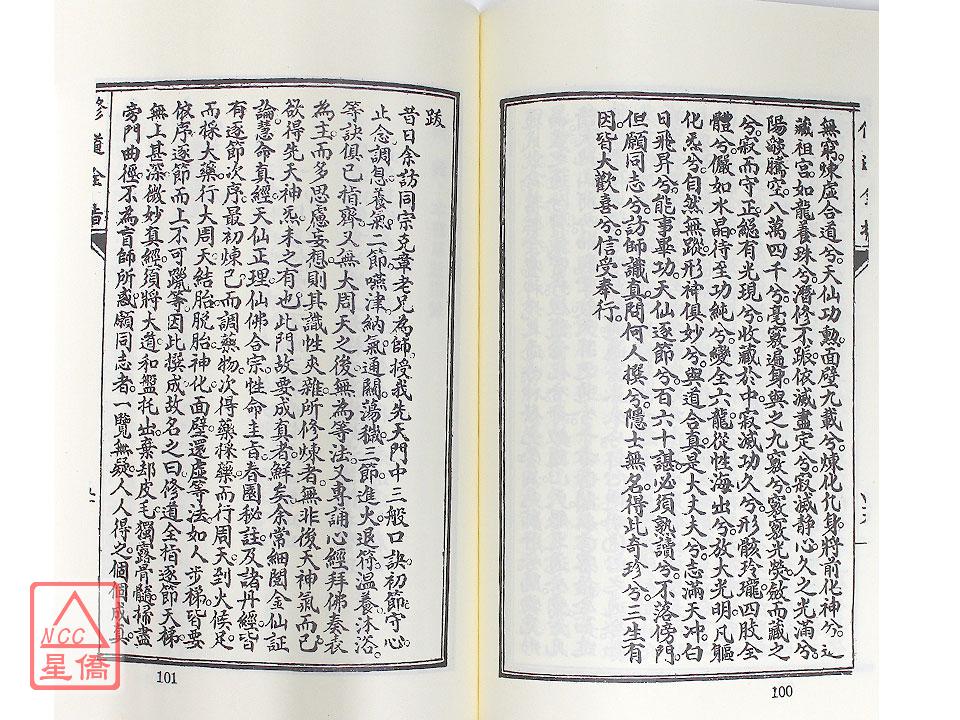 無窮煉虛合道兮天仙功勲面壁九載兮煉化凡身將前化神兮
藏祖宫如龍養珠兮潛修不踬依滅盡定兮寂滅静心久之光滿兮
陽燄騰空八萬四千兮毫竅遍身與之九竅兮竅竅光熒歛而藏之
兮寂而守正綿有光現兮收藏於中寂滅功久兮形骸玲瓏四肢全
體兮儼如水晶侍至功純兮變全六龍從性海出兮放大光明凡軀
化炁兮自然無蹤形神俱妙兮與道合真是大丈夫兮志滿天冲白
日飛昇兮能事畢功天仙逐節兮百六十諶必須熟讀兮不落傍門
但願同志兮訪師識真問何人撰兮隱士無名得此奇珍兮三生有
因皆大歡喜兮信受奉行
100
跋
昔日余訪同宗克章老兄為師授我先天門中三般口訣初節守心
止念調息養氣二節嚥津納氣通關蕩穢三節進火退符温養沐浴
等訣俱已指齊又無大周天之後無為等法又專誦心經拜佛奏表
為主而多思慮妄想則其識性夾雜所修煉者無非後天神氣而已
欲得先天神炁未之有也此門故要成真者鮮矣余常細閱金仙証
論慧命真經天仙正理仙佛合宗性命圭旨春園秘註及諸丹經皆
有逐節次序最初煉已而調藥物次得藥採藥而行周天到火候足
而採大藥行大周天結胎脱胎神化面壁還虛等法如人步梯皆要
依序逐節而上不可躐等因此撰成故名之曰修道全指逐節天梯
無上甚深微妙真經須將大道和盤托出棄却皮毛獨露骨髓掃盡
旁門曲徑不為盲師所惑願同志者一覽無疑人人得之個個成真
修道金
101
NCC
星僑